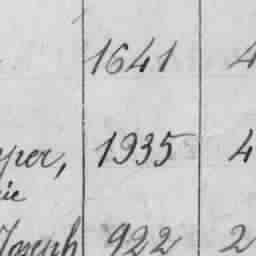 1641 4
yper, 1935 4
cie
Joseph 922 2